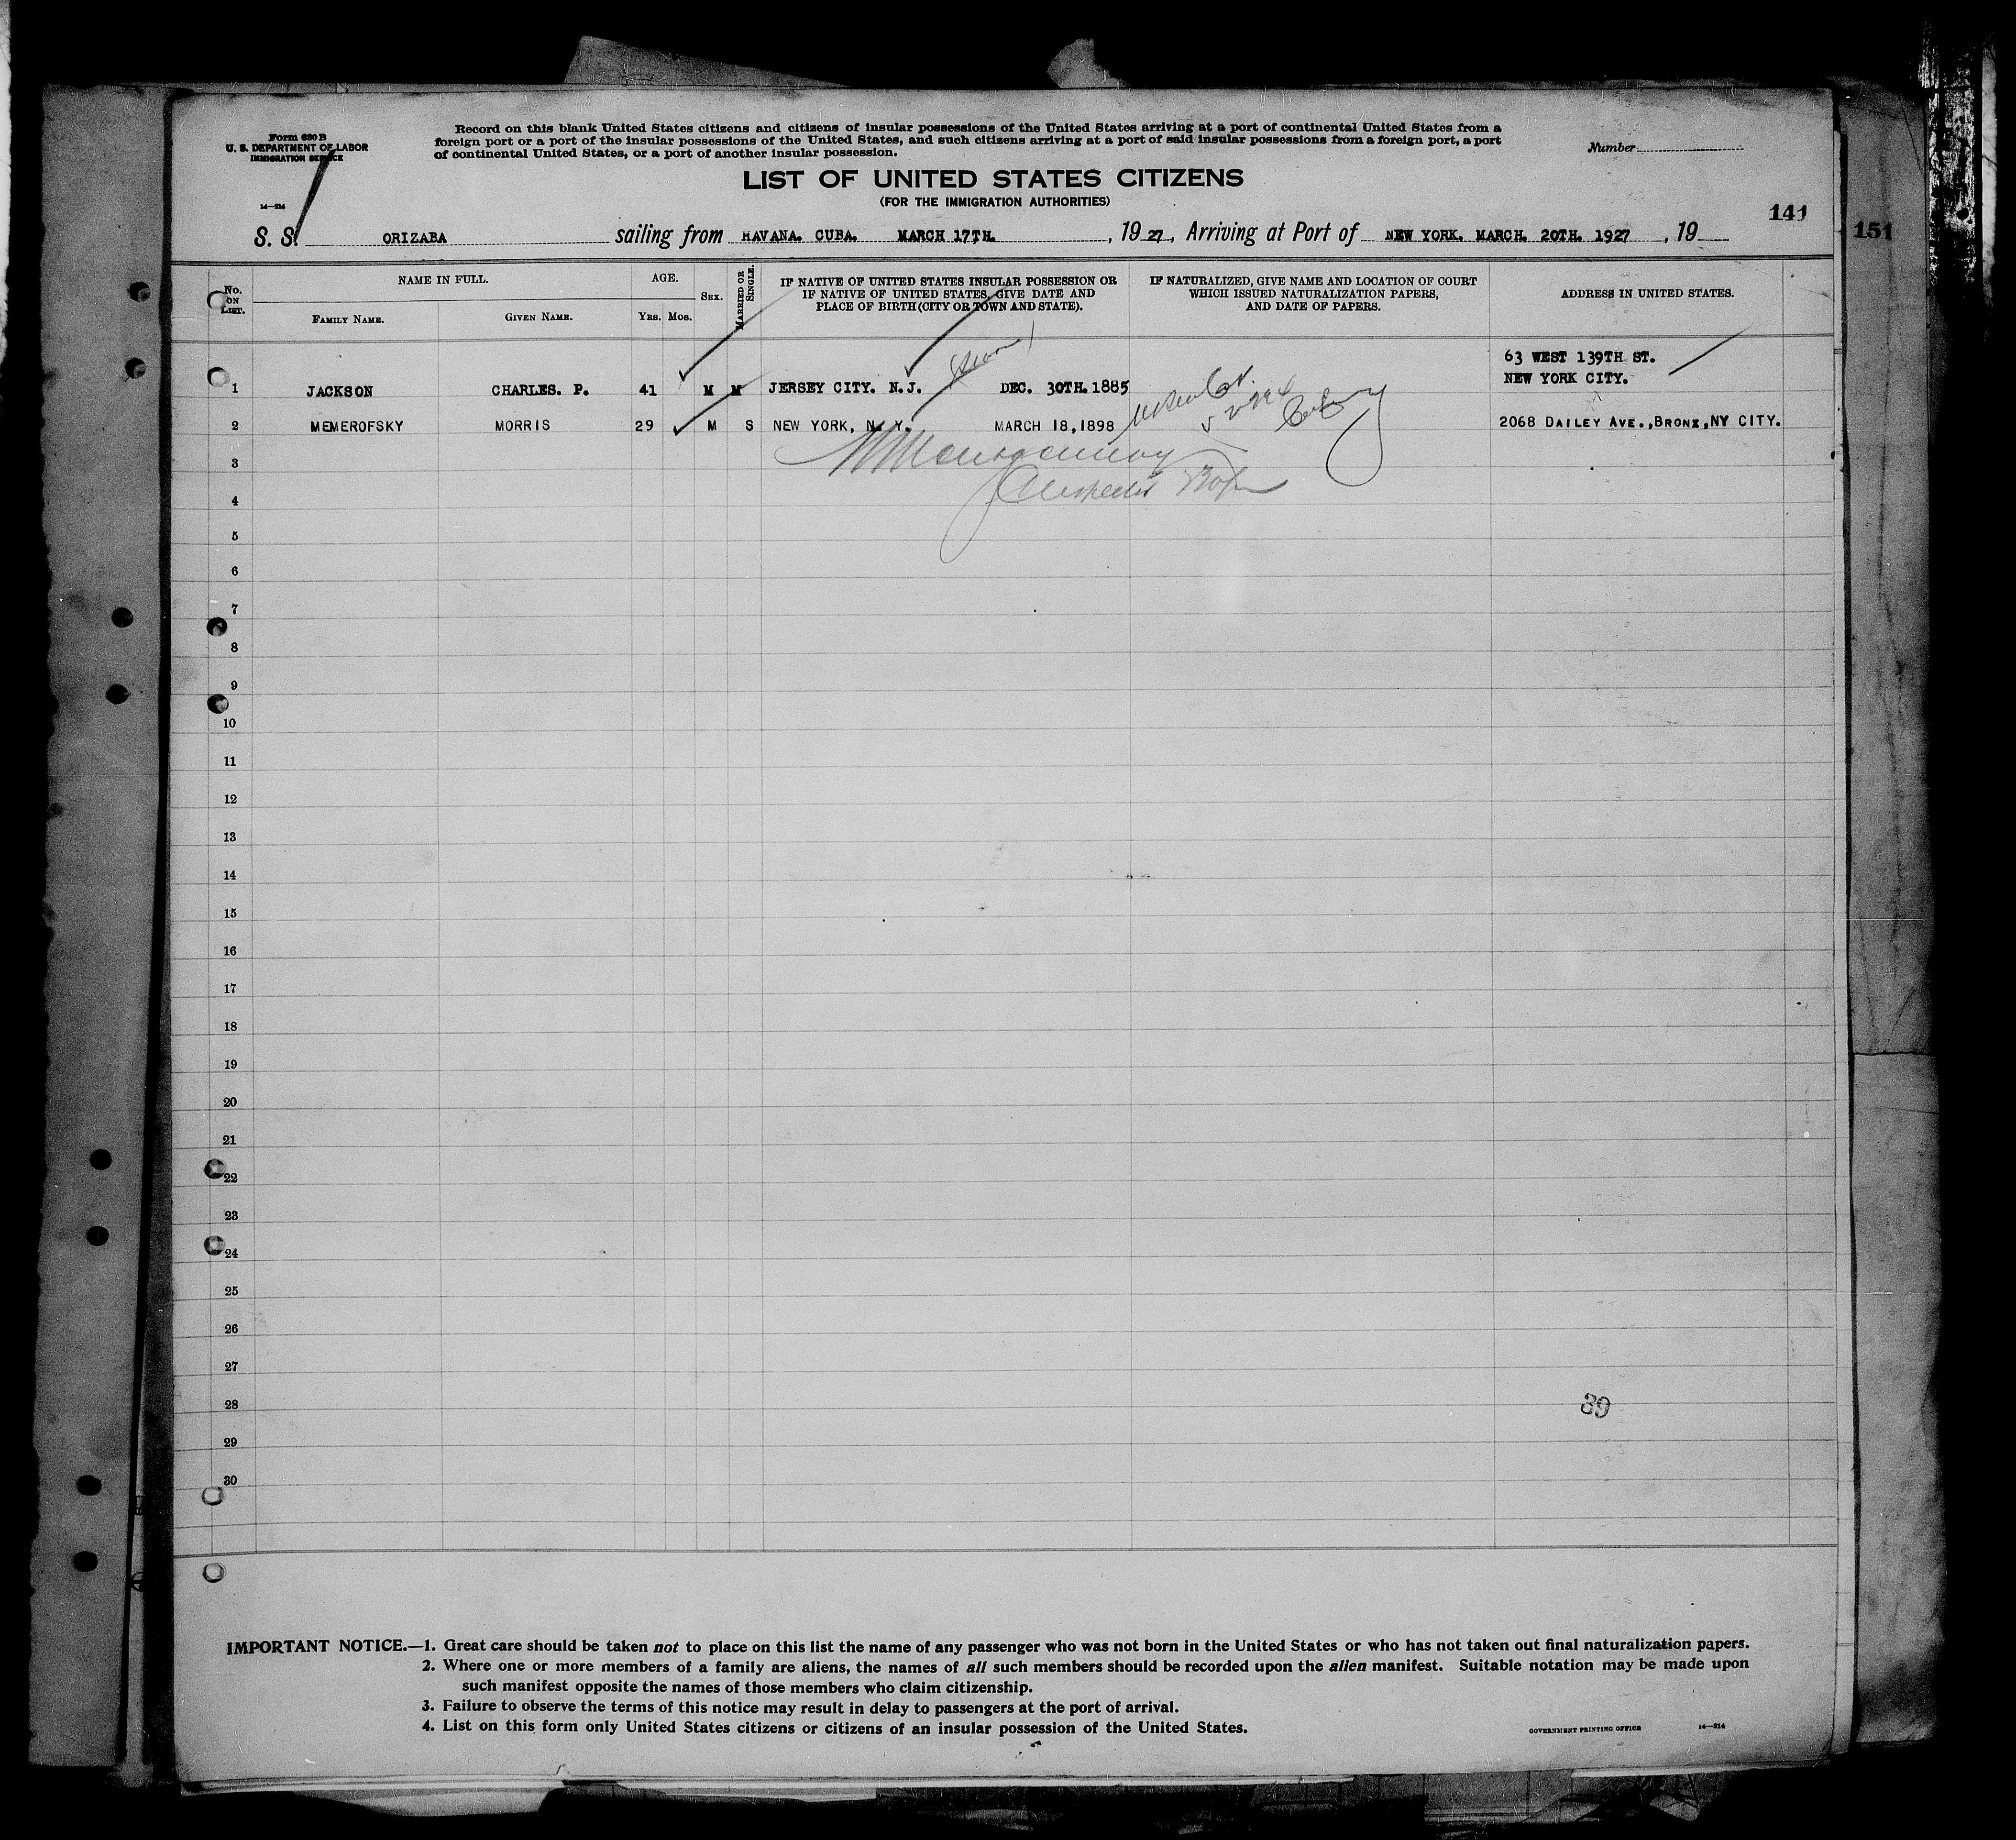 Form 630 B
U. S. DEPARTMENT OF LABOR
IMMIGRATION SERVICE
14—214
Record on this blank United States citizens and citizens of insular possessions of the United States arriving at a port of continental United States from a
foreign port or a port of the insular possessions of the United States, and such citizens arriving at a port of said insular possessions from a foreign port, a port
of continental United States, or a port of another insular possession.
Number
LIST OF UNITED STATES CITIZENS
(FOR THE IMMIGRATION AUTHORITIES)
141
151
S. S. ORIZABA sailing from HAVANA. CUBA. MARCH 17TH. , 19 27 , Arriving at Port of NEW YORK. MARCH. 20TH. 1927 , 19
No. ON LIST.
NAME IN FULL.
FAMILY NAME.
GIVEN NAME.
AGE.
YRS. MOS.
SEX.
MARRIED OR SINGLE.
IF NATIVE OF UNITED STATES INSULAR POSSESSION OR
IF NATIVE OF UNITED STATES, GIVE DATE AND
PLACE OF BIRTH (CITY OR TOWN AND STATE).
IF NATURALIZED, GIVE NAME AND LOCATION OF COURT
WHICH ISSUED NATURALIZATION PAPERS,
AND DATE OF PAPERS.
ADDRESS IN UNITED STATES.
63 WEST 139TH ST.
1 JACKSON CHARLES. P. 41 M M JERSEY CITY. N.J. DEC. 30TH. 1885 NEW YORK CITY.
2 MEMEROFSKY MORRIS 29 M S NEW YORK, N. Y. MARCH 18, 1898 2068 DAILEY AVE., BRONX, NY CITY.
3
4
5
6
7
8
9
10
11
12
13
14
15
16
17
18
19
20
21
22
23
24
25
26
27
28 89
29
30
IMPORTANT NOTICE.—1. Great care should be taken not to place on this list the name of any passenger who was not born in the United States or who has not taken out final naturalization papers.
2. Where one or more members of a family are aliens, the names of all such members should be recorded upon the alien manifest. Suitable notation may be made upon
such manifest opposite the names of those members who claim citizenship.
3. Failure to observe the terms of this notice may result in delay to passengers at the port of arrival.
4. List on this form only United States citizens or citizens of an insular possession of the United States.
GOVERNMENT PRINTING OFFICE 14—214